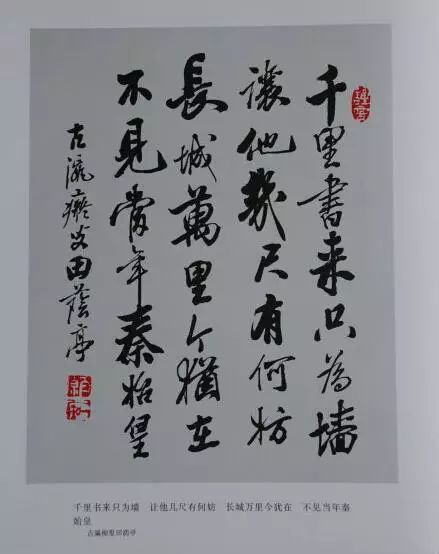 千里書来只為墻
讓他幾尺有何妨
長城萬里今猶在
不見當年秦始皇
古瀛癡叟田蔭亭
千里书来只为墙　让他几尺有何妨　长城万里今犹在　不见当年秦
始皇
古瀛痴叟田荫亭